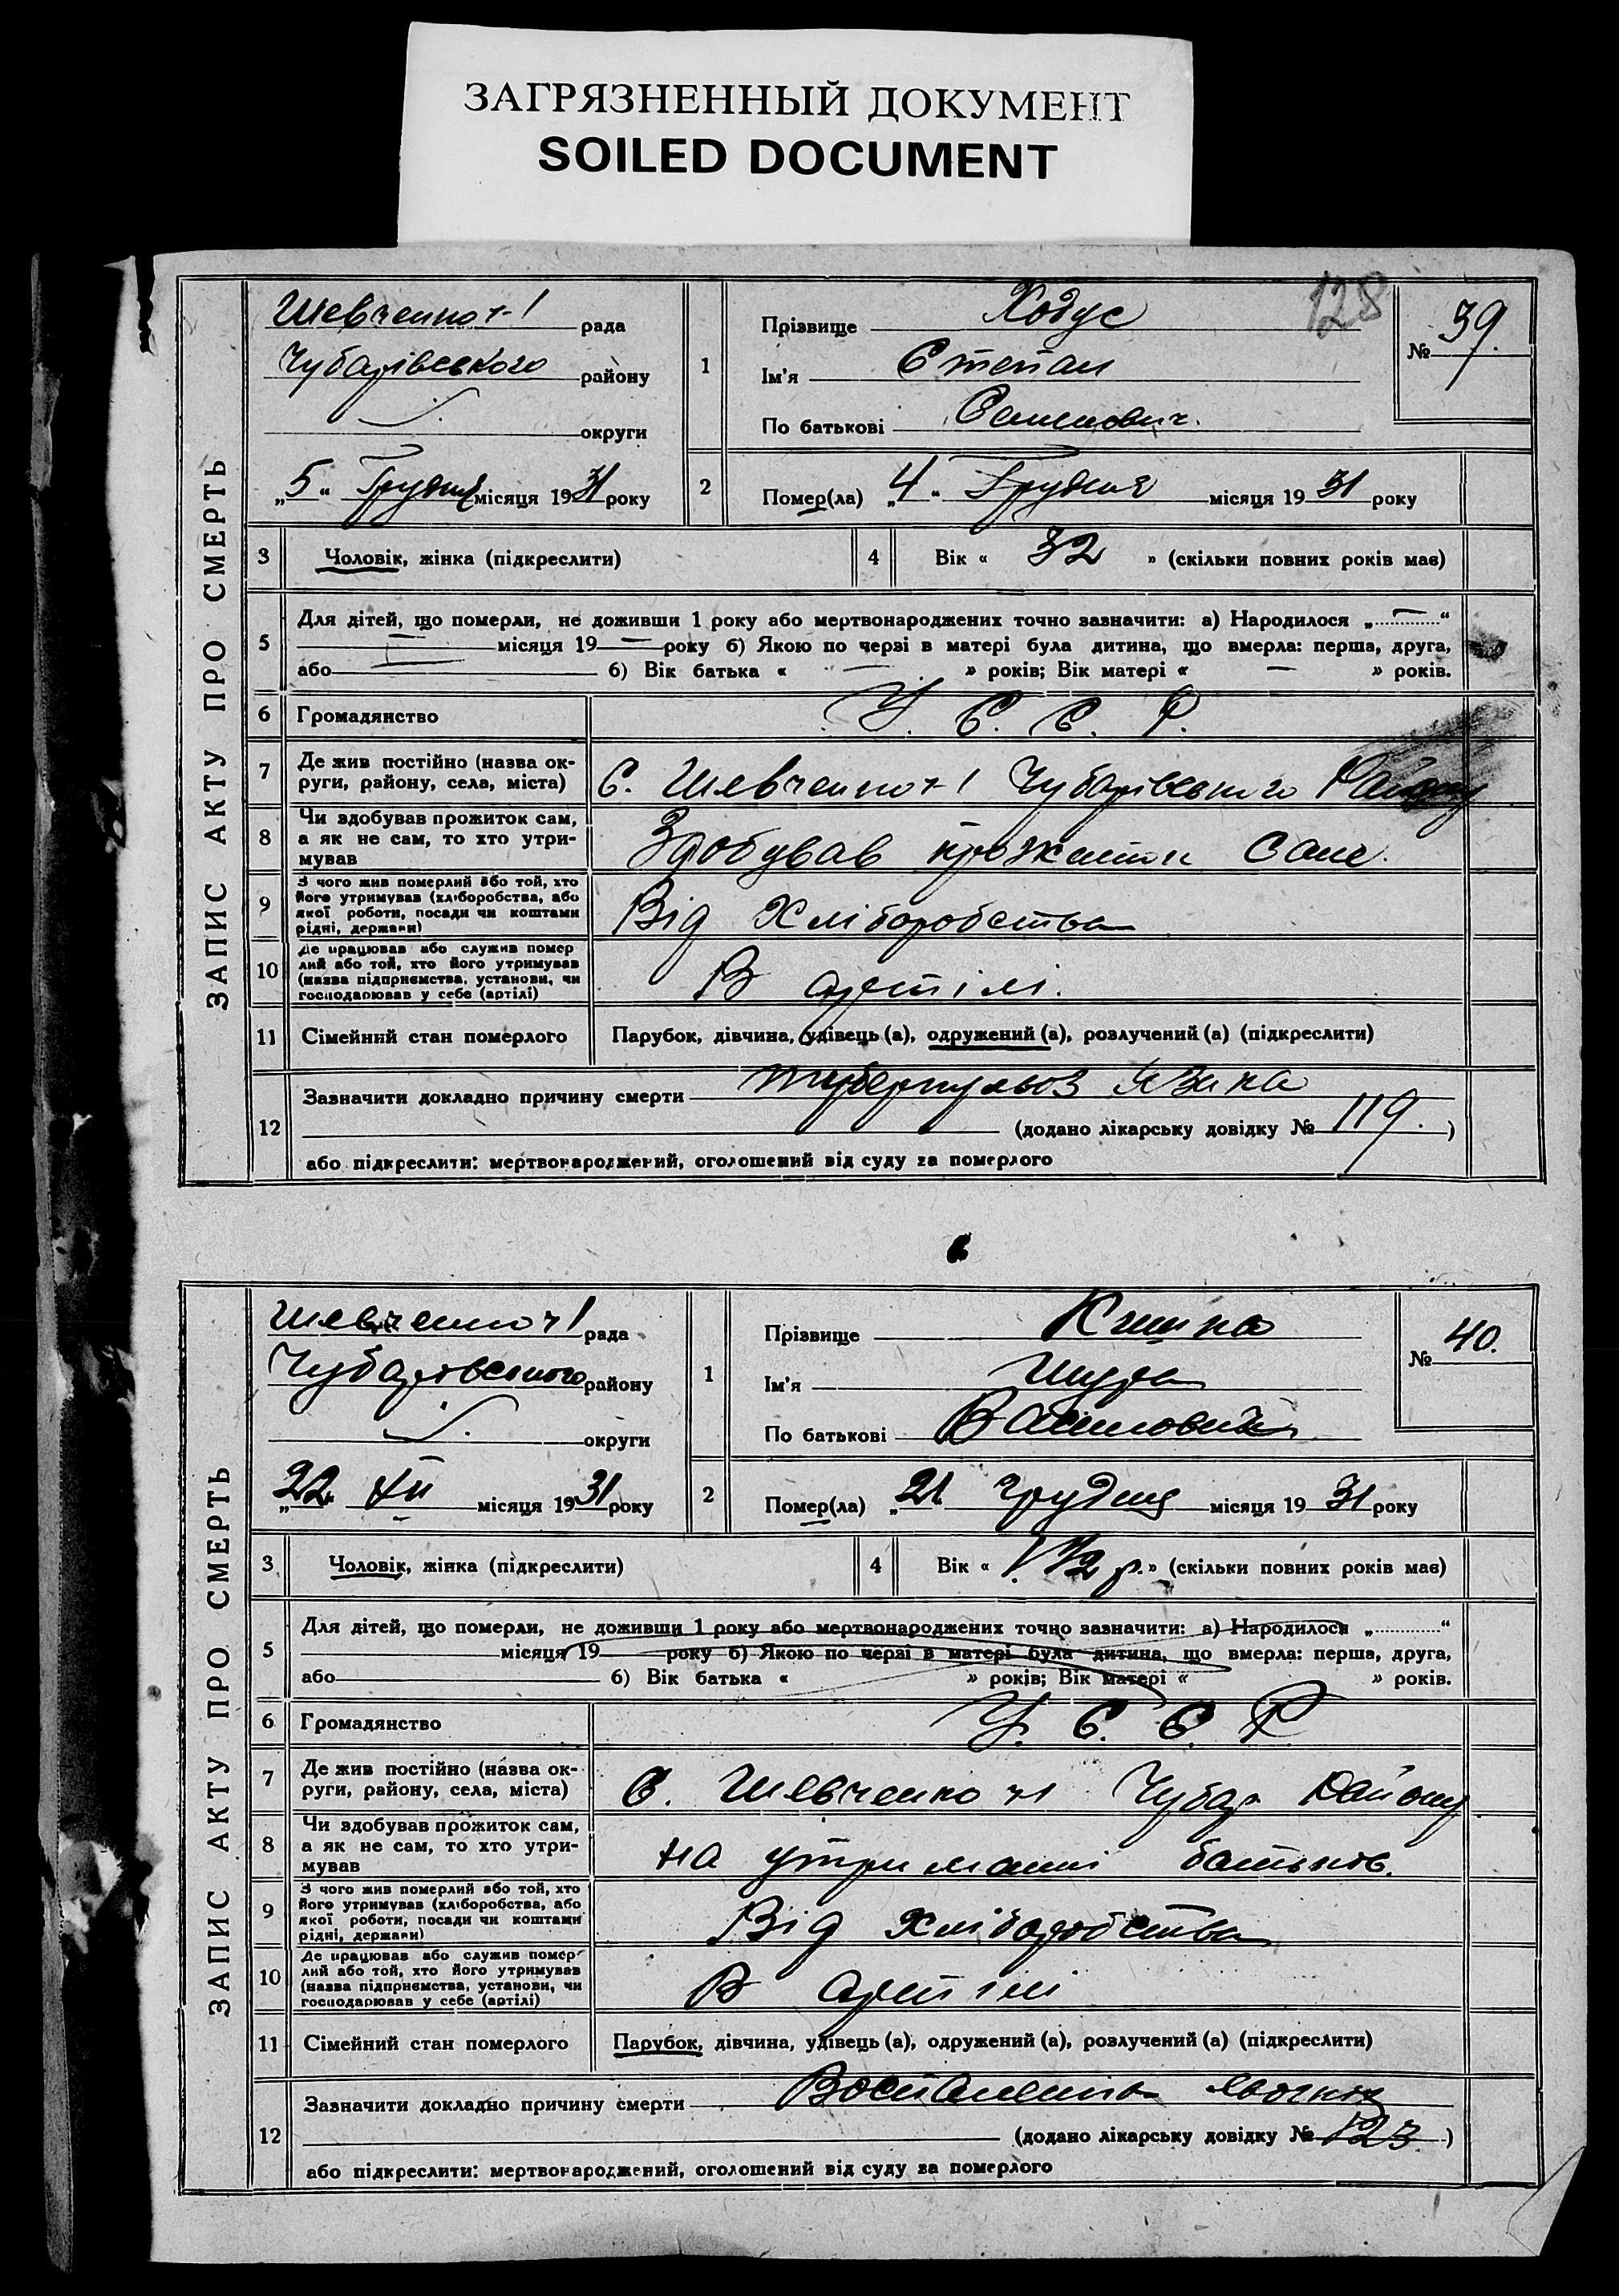 ЗАГРЯЗНЕННЫЙ ДОКУМЕНТ
SOILED DOCUMENT
128
ЗАПИС АКТУ ПРО СМЕРТЬ
Шевченко №1 рада
Чубарівського району
округи
„5“ Грудня місяця 1931 року
1
Прізвище Ходус
Ім'я Степан
По батькові Семенович.
№ 39.
2
Помер(ла) „4“ Грудня місяця 1931 року
3 Чоловік, жінка (підкреслити)
4 Вік « 32 » (скільки повних років має)
5 Для дітей, що померли, не доживши 1 року або мертвонароджених точно зазначити: а) Народилося „ — “
— місяця 19 — року б) Якою по черзі в матері була дитина, що вмерла: перша, друга,
або — 6) Вік батька « — » років; Вік матері « — » років.
6 Громадянство У. С. С. Р.
7 Де жив постійно (назва округи, району, села, міста) С. Шевченко №1 Чубарівського Району
8 Чи здобував прожиток сам, а як не сам, то хто утримував Здобував прожиток Сам.
9 З чого жив померлий або той, хто його утримував (хліборобства, або якої роботи, посади чи коштами рідні, держави) Від Хліборобства
10 Де працював або служив померлий або той, хто його утримував (назва підприємства, установи, чи господарював у себе (артілі) В артілі.
11 Сімейний стан померлого Парубок, дівчина, удівець (а), одружений (а), розлучений (а) (підкреслити)
12 Зазначити докладно причину смерти туберкульоз язика
(додано лікарську довідку № 119.)
або підкреслити: мертвонароджений, оголошений від суду за померлого
ЗАПИС АКТУ ПРО СМЕРТЬ
Шевченко №1 рада
Чубарівського району
округи
„22“ XII місяця 1931 року
1
Прізвище
Ім'я Шура
По батькові
№ 40.
2
Помер(ла) „21 Грудня місяця 1931 року
3 Чоловік, жінка (підкреслити)
4 Вік « 1 1/2 р. » (скільки повних років має)
5 Для дітей, що померли, не доживши 1 року або мертвонароджених точно зазначити: а) Народилося „ “
місяця 19 року б) Якою по черзі в матері була дитина, що вмерла: перша, друга,
або 6) Вік батька « » років; Вік матері « » років.
6 Громадянство У. С. С. Р
7 Де жив постійно (назва округи, району, села, міста) С. Шевченко №1 Чубар Району
8 Чи здобував прожиток сам, а як не сам, то хто утримував на утриманні батьків.
9 З чого жив померлий або той, хто його утримував (хліборобства, або якої роботи, посади чи коштами рідні, держави) Від Хліборобства
10 Де працював або служив померлий або той, хто його утримував (назва підприємства, установи, чи господарював у себе (артілі) В артілі
11 Сімейний стан померлого Парубок, дівчина, удівець (а), одружений (а), розлучений (а) (підкреслити)
12 Зазначити докладно причину смерти
(додано лікарську довідку № 123)
або підкреслити: мертвонароджений, оголошений від суду за померлого